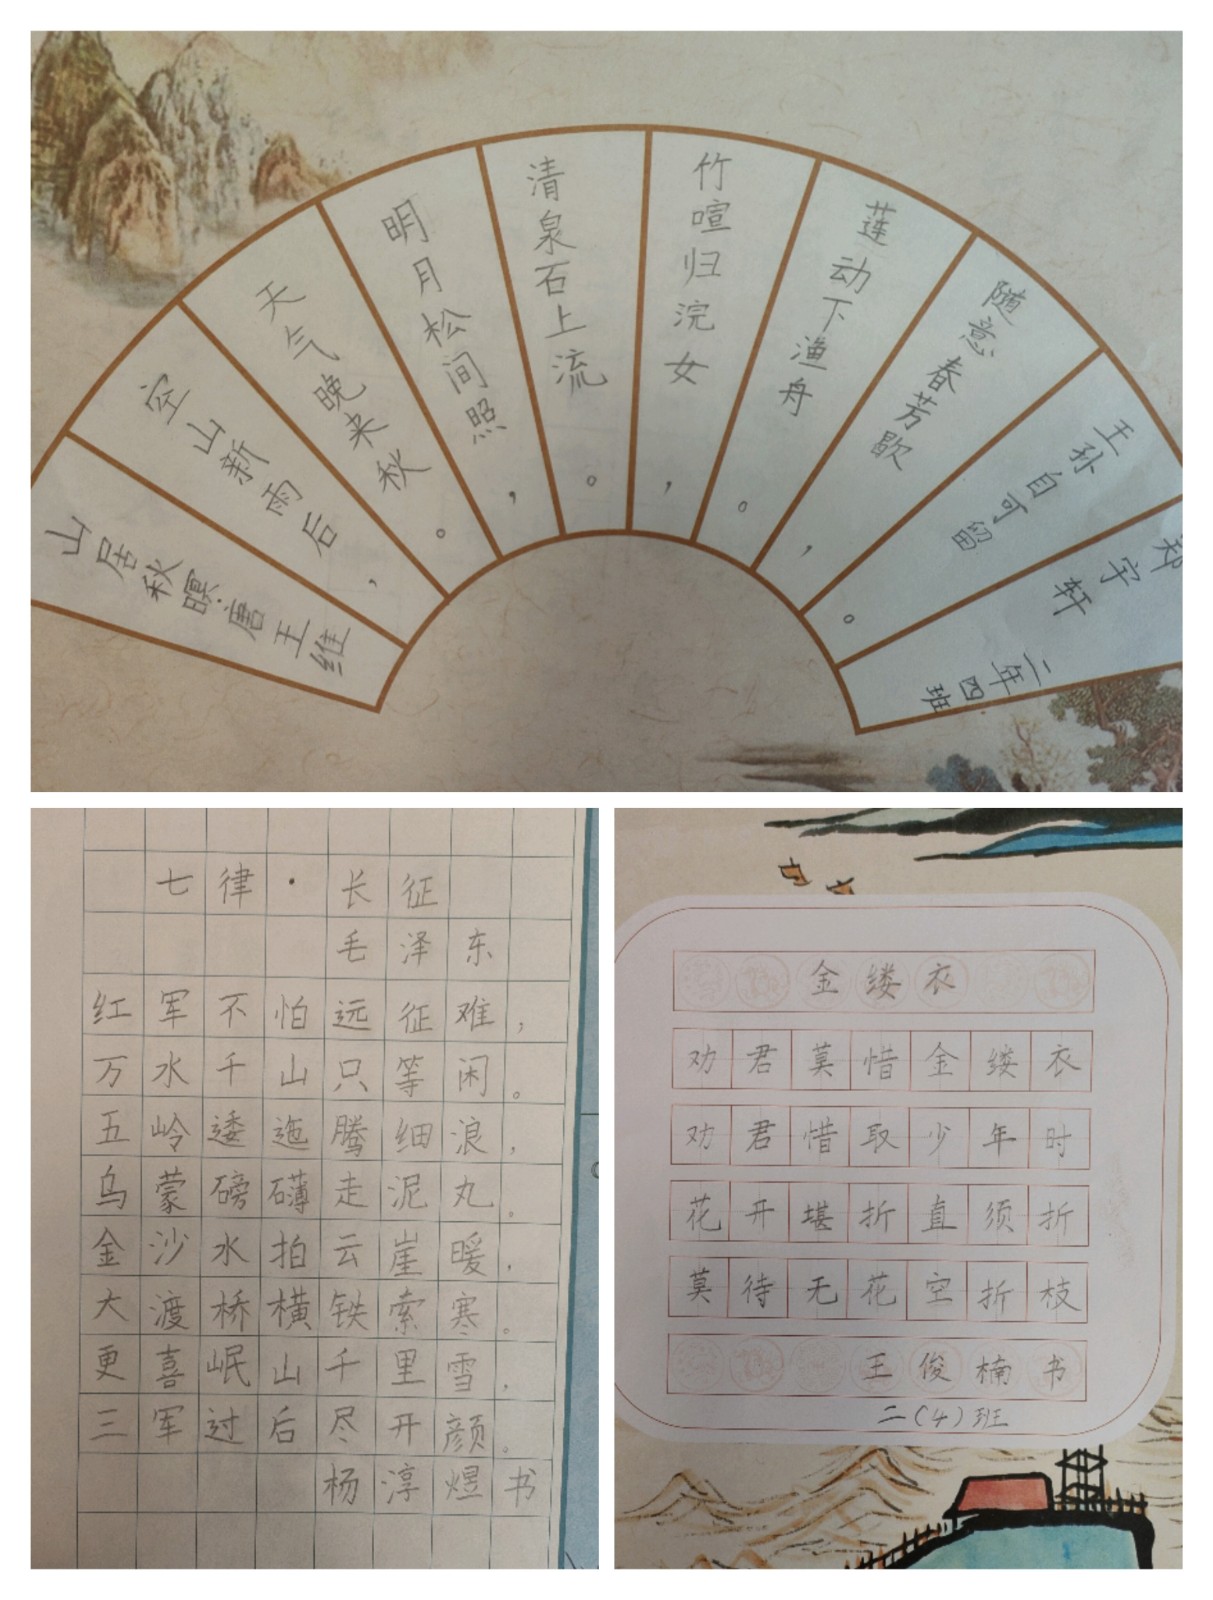 山居秋暝·唐王维
空山新雨后，
天气晚来秋。
明月松间照，
清泉石上流。
竹喧归浣女，
莲动下渔舟。
随意春芳歇，
王孙自可留。
郑宇轩
二年四班
七律·长征
毛泽东
红军不怕远征难，
万水千山只等闲。
五岭逶迤腾细浪，
乌蒙磅礴走泥丸。
金沙水拍云崖暖，
大渡桥横铁索寒。
更喜岷山千里雪，
三军过后尽开颜。
杨淳煜书
金缕衣
劝君莫惜金缕衣
劝君惜取少年时
花开堪折直须折
莫待无花空折枝
王俊楠书
二（4）班